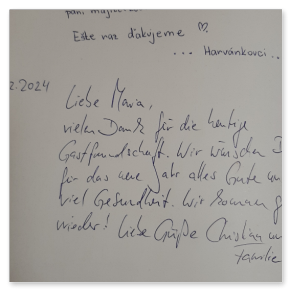 Ešte raz ďakujeme ♡
... Harvánkovci ..
2.2024
Liebe Maria,
vielen Dank für die heutige
Gastfreundschaft. Wir wünschen D
für das neue Jahr alles Gute un
viel Gesundheit. Wir kommen g
wieder! Liebe Grüße Christina un
Familie